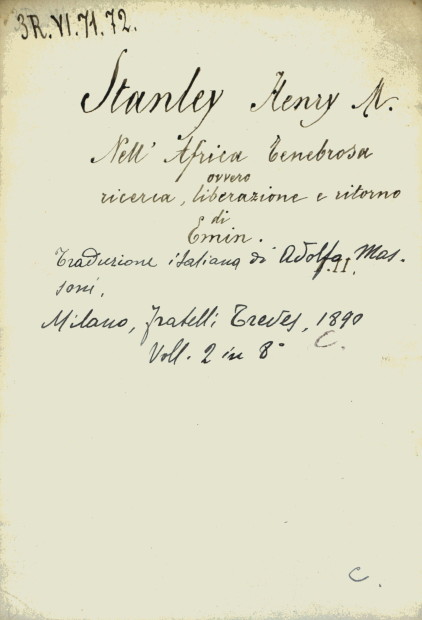 3R.VI.71.72.
Stanley Henry M.
Nell' Africa Tenebrosa
ovvero
ricerca, liberazione e ritorno
di
Emin.
Traduzione italiana di Adolfo Mas-
I.II.
soni,
Milano, fratelli Treves, 1890
C.
Voll. 2 in 8°
C.